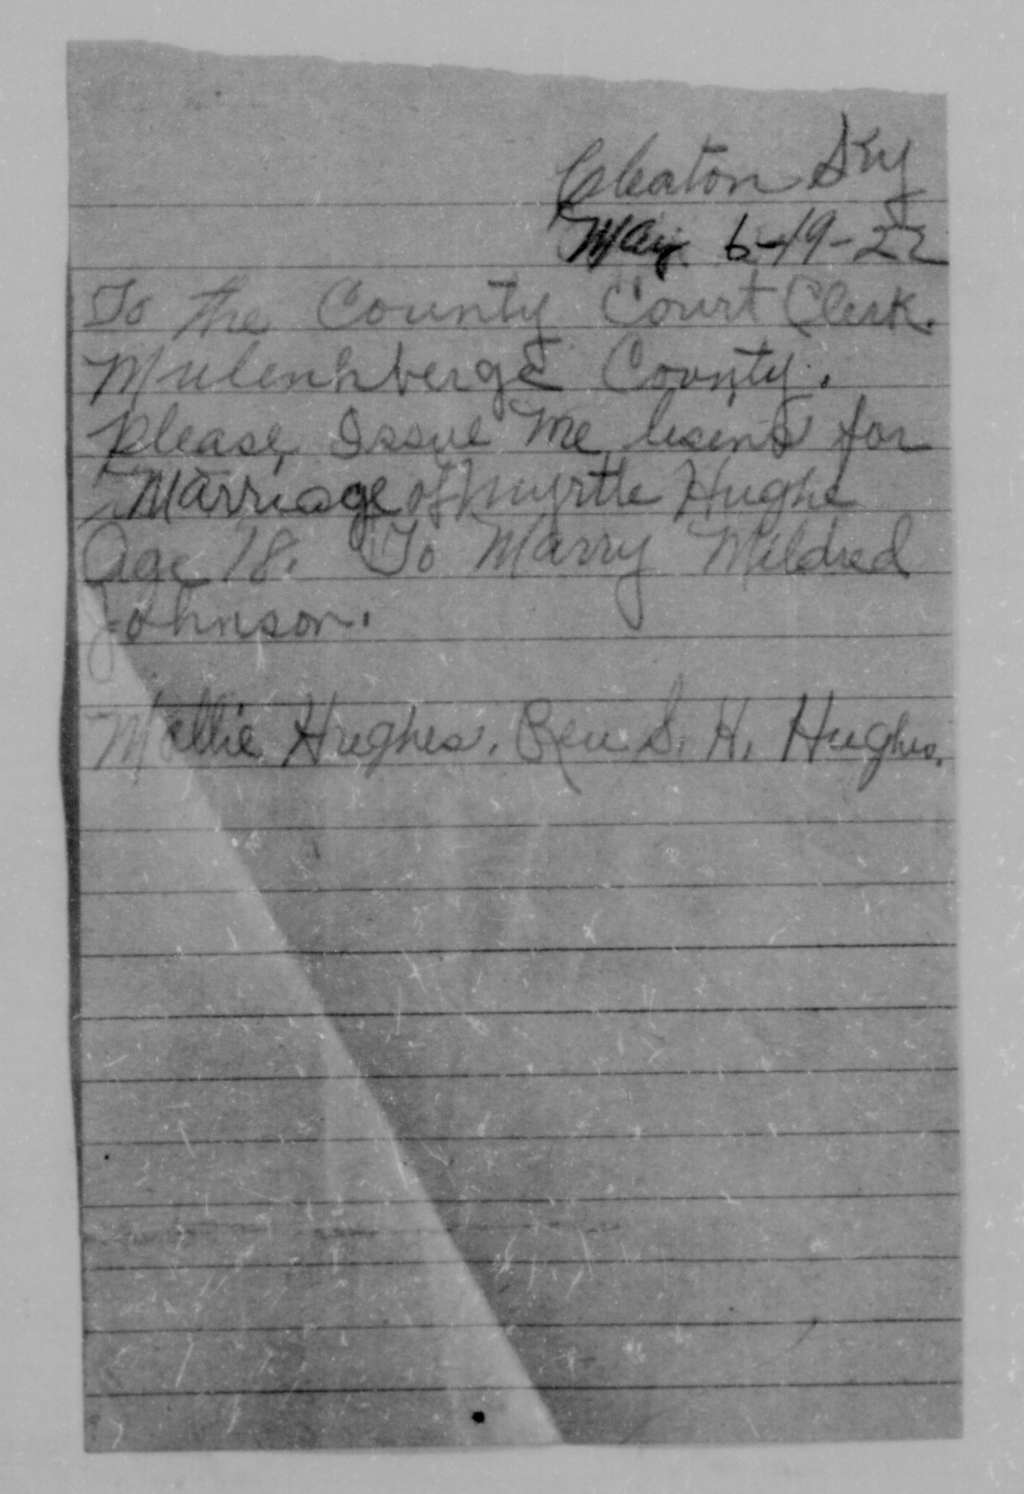 Cleaton Ky
May 6-19-22
To the County Court Clerk.
Mulenhberge County.
Please Issue Me lisens for
Marriage of Myrtle Hughe
Age 18. To Marry Mildred
Johnson.
Mollie Hughes. Rev S. H. Hughes.